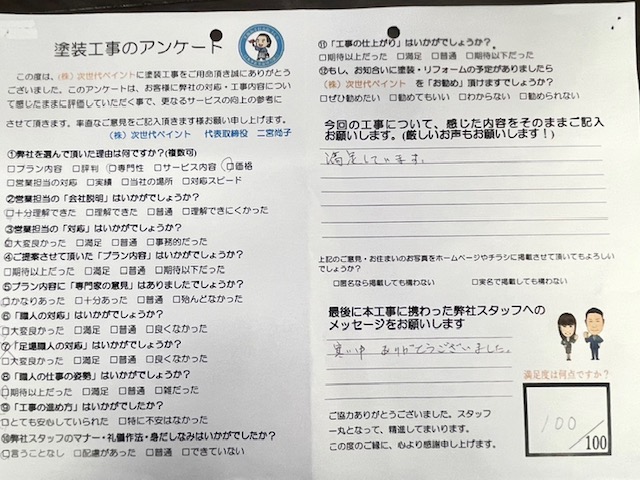 塗装工事のアンケート
この度は、(株)次世代ペイントに塗装工事をご用命頂き誠にありがとう
ございました。このアンケートは、お客様に弊社の対応・工事内容につい
て感じたままに評価していただく事で、更なるサービスの向上の参考に
させて頂きます。率直なご意見をご記入頂きます様お願い申し上げます。
(株)次世代ペイント 代表取締役 二宮尚子
①弊社を選んで頂いた理由は何ですか?(複数可)
□プラン内容 □評判 □専門性 □サービス内容 □価格
□営業担当の対応 □実績 □当社の場所 □対応スピード
②営業担当の「会社説明」はいかがでしょうか?
□十分理解できた □理解できた □普通 □理解できにくかった
③営業担当の「対応」はいかがでしょうか?
□大変良かった □満足 □普通 □事務的だった
④ご提案させて頂いた「プラン内容」はいかがでしょうか?
□期待以上だった □満足 □普通 □期待以下だった
⑤プラン内容に「専門家の意見」はありましたでしょうか?
□かなりあった □十分あった □普通 □殆んどなかった
⑥「職人の対応」はいかがでしょうか?
□大変良かった □満足 □普通 □良くなかった
⑦「足場職人の対応」はいかがでしょうか?
□大変良かった □満足 □普通 □良くなかった
⑧「職人の仕事の姿勢」はいかがでしょうか?
□期待以上だった □満足 □普通 □雑だった
⑨「工事の進め方」はいかがでしたか?
□とても安心していられた □特に不安はなかった
⑩弊社スタッフのマナー・礼儀作法・身だしなみはいかがでしたか?
□言うことなし □配慮があった □普通 □できていない
⑪「工事の仕上がり」はいかがでしょうか?
□期待以上だった □満足 □普通 □期待以下だった
⑫もし、お知合いに塗装・リフォームの予定がありましたら
(株)次世代ペイント を「お勧め」頂けますでしょうか?
□ぜひ勧めたい □勧めてもいい □わからない □勧められない
今回の工事について、感じた内容をそのままご記入
お願いします。(厳しいお声もお願いします!)
満足しています。
上記のご意見・お住まいのお写真をホームページやチラシに掲載させて頂いてもよろしい
でしょうか?
□匿名なら掲載しても構わない □実名で掲載しても構わない
最後に本工事に携わった弊社スタッフへの
メッセージをお願いします
寒い中 ありがとうございました。
満足度は何点ですか?
100/100
ご協力ありがとうございました。スタッフ
一丸となって、精進してまいります。
この度のご縁に、心より感謝申し上げます。